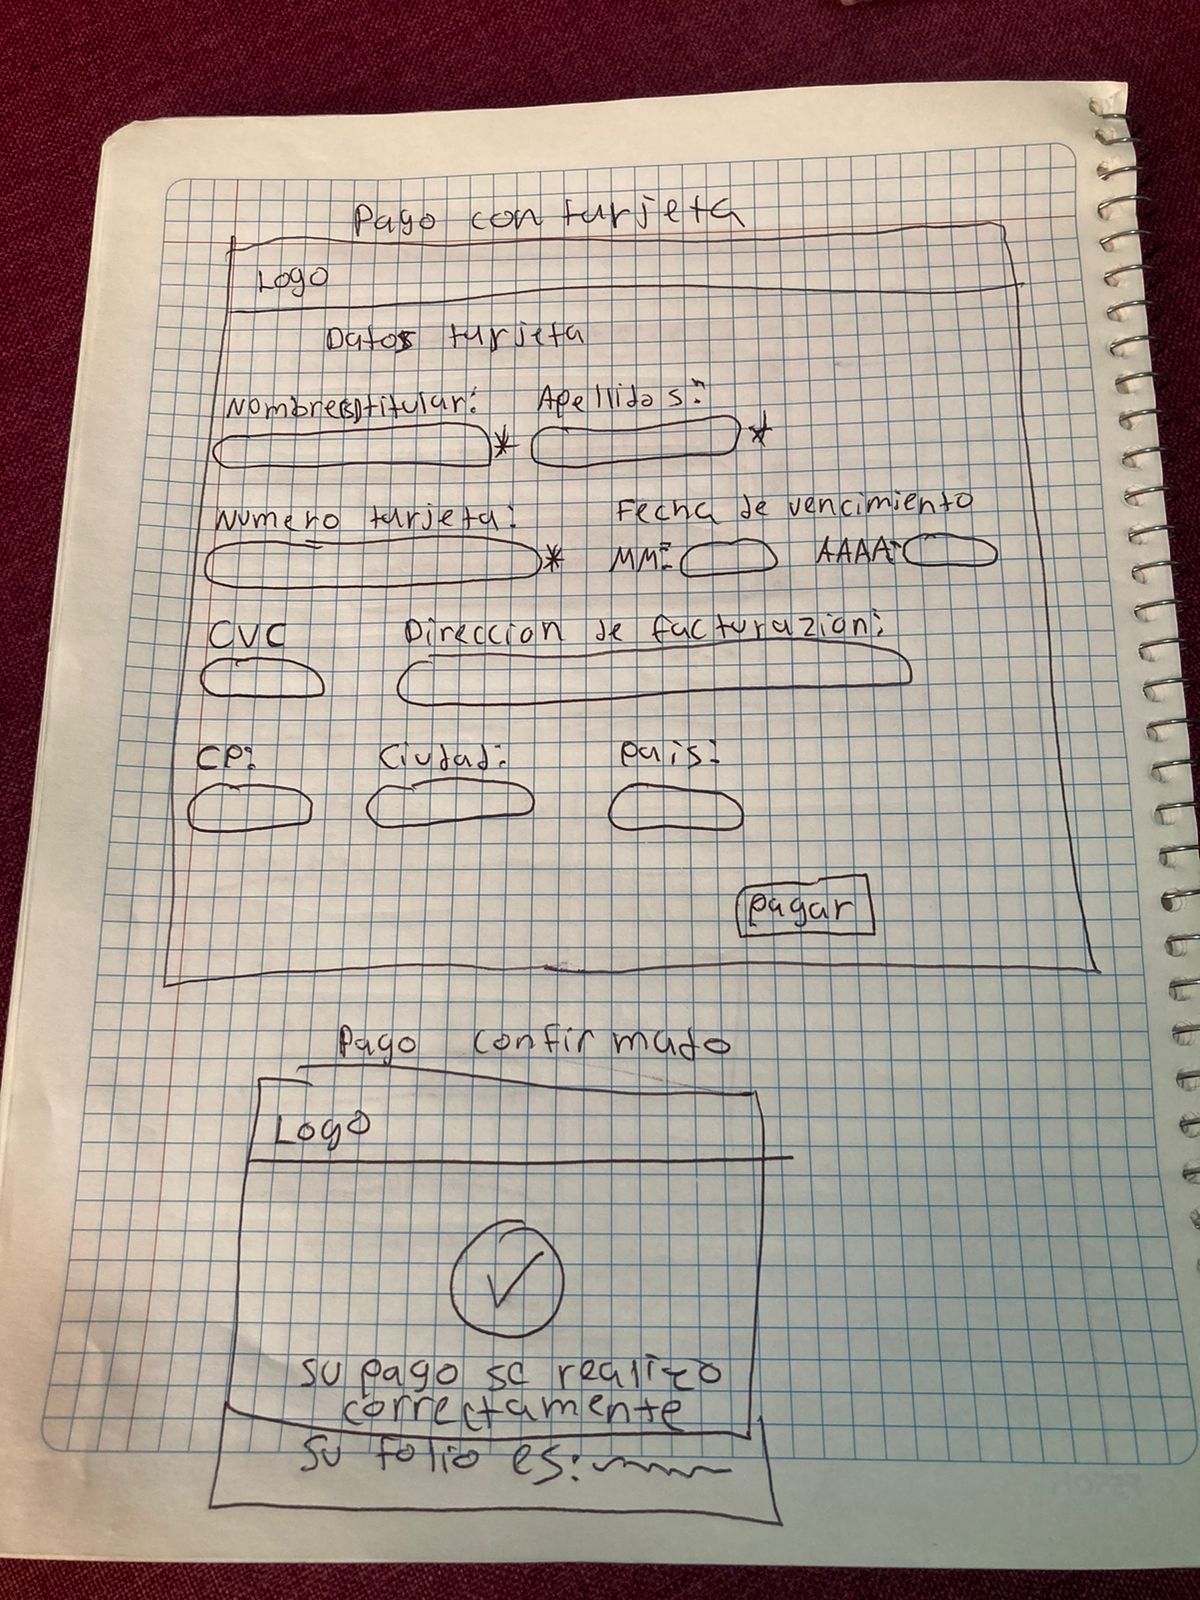 Pago con tarjeta
Logo
Datos tarjeta
Nombre(s) titular: Apellidos:
* *
Numero tarjeta: Fecha de vencimiento
* MM: AAAA:
CVC Direccion de facturazion:
CP: Ciudad: pais:
pagar
Pago confirmado
Logo
su pago se realizo
correctamente
su folio es: